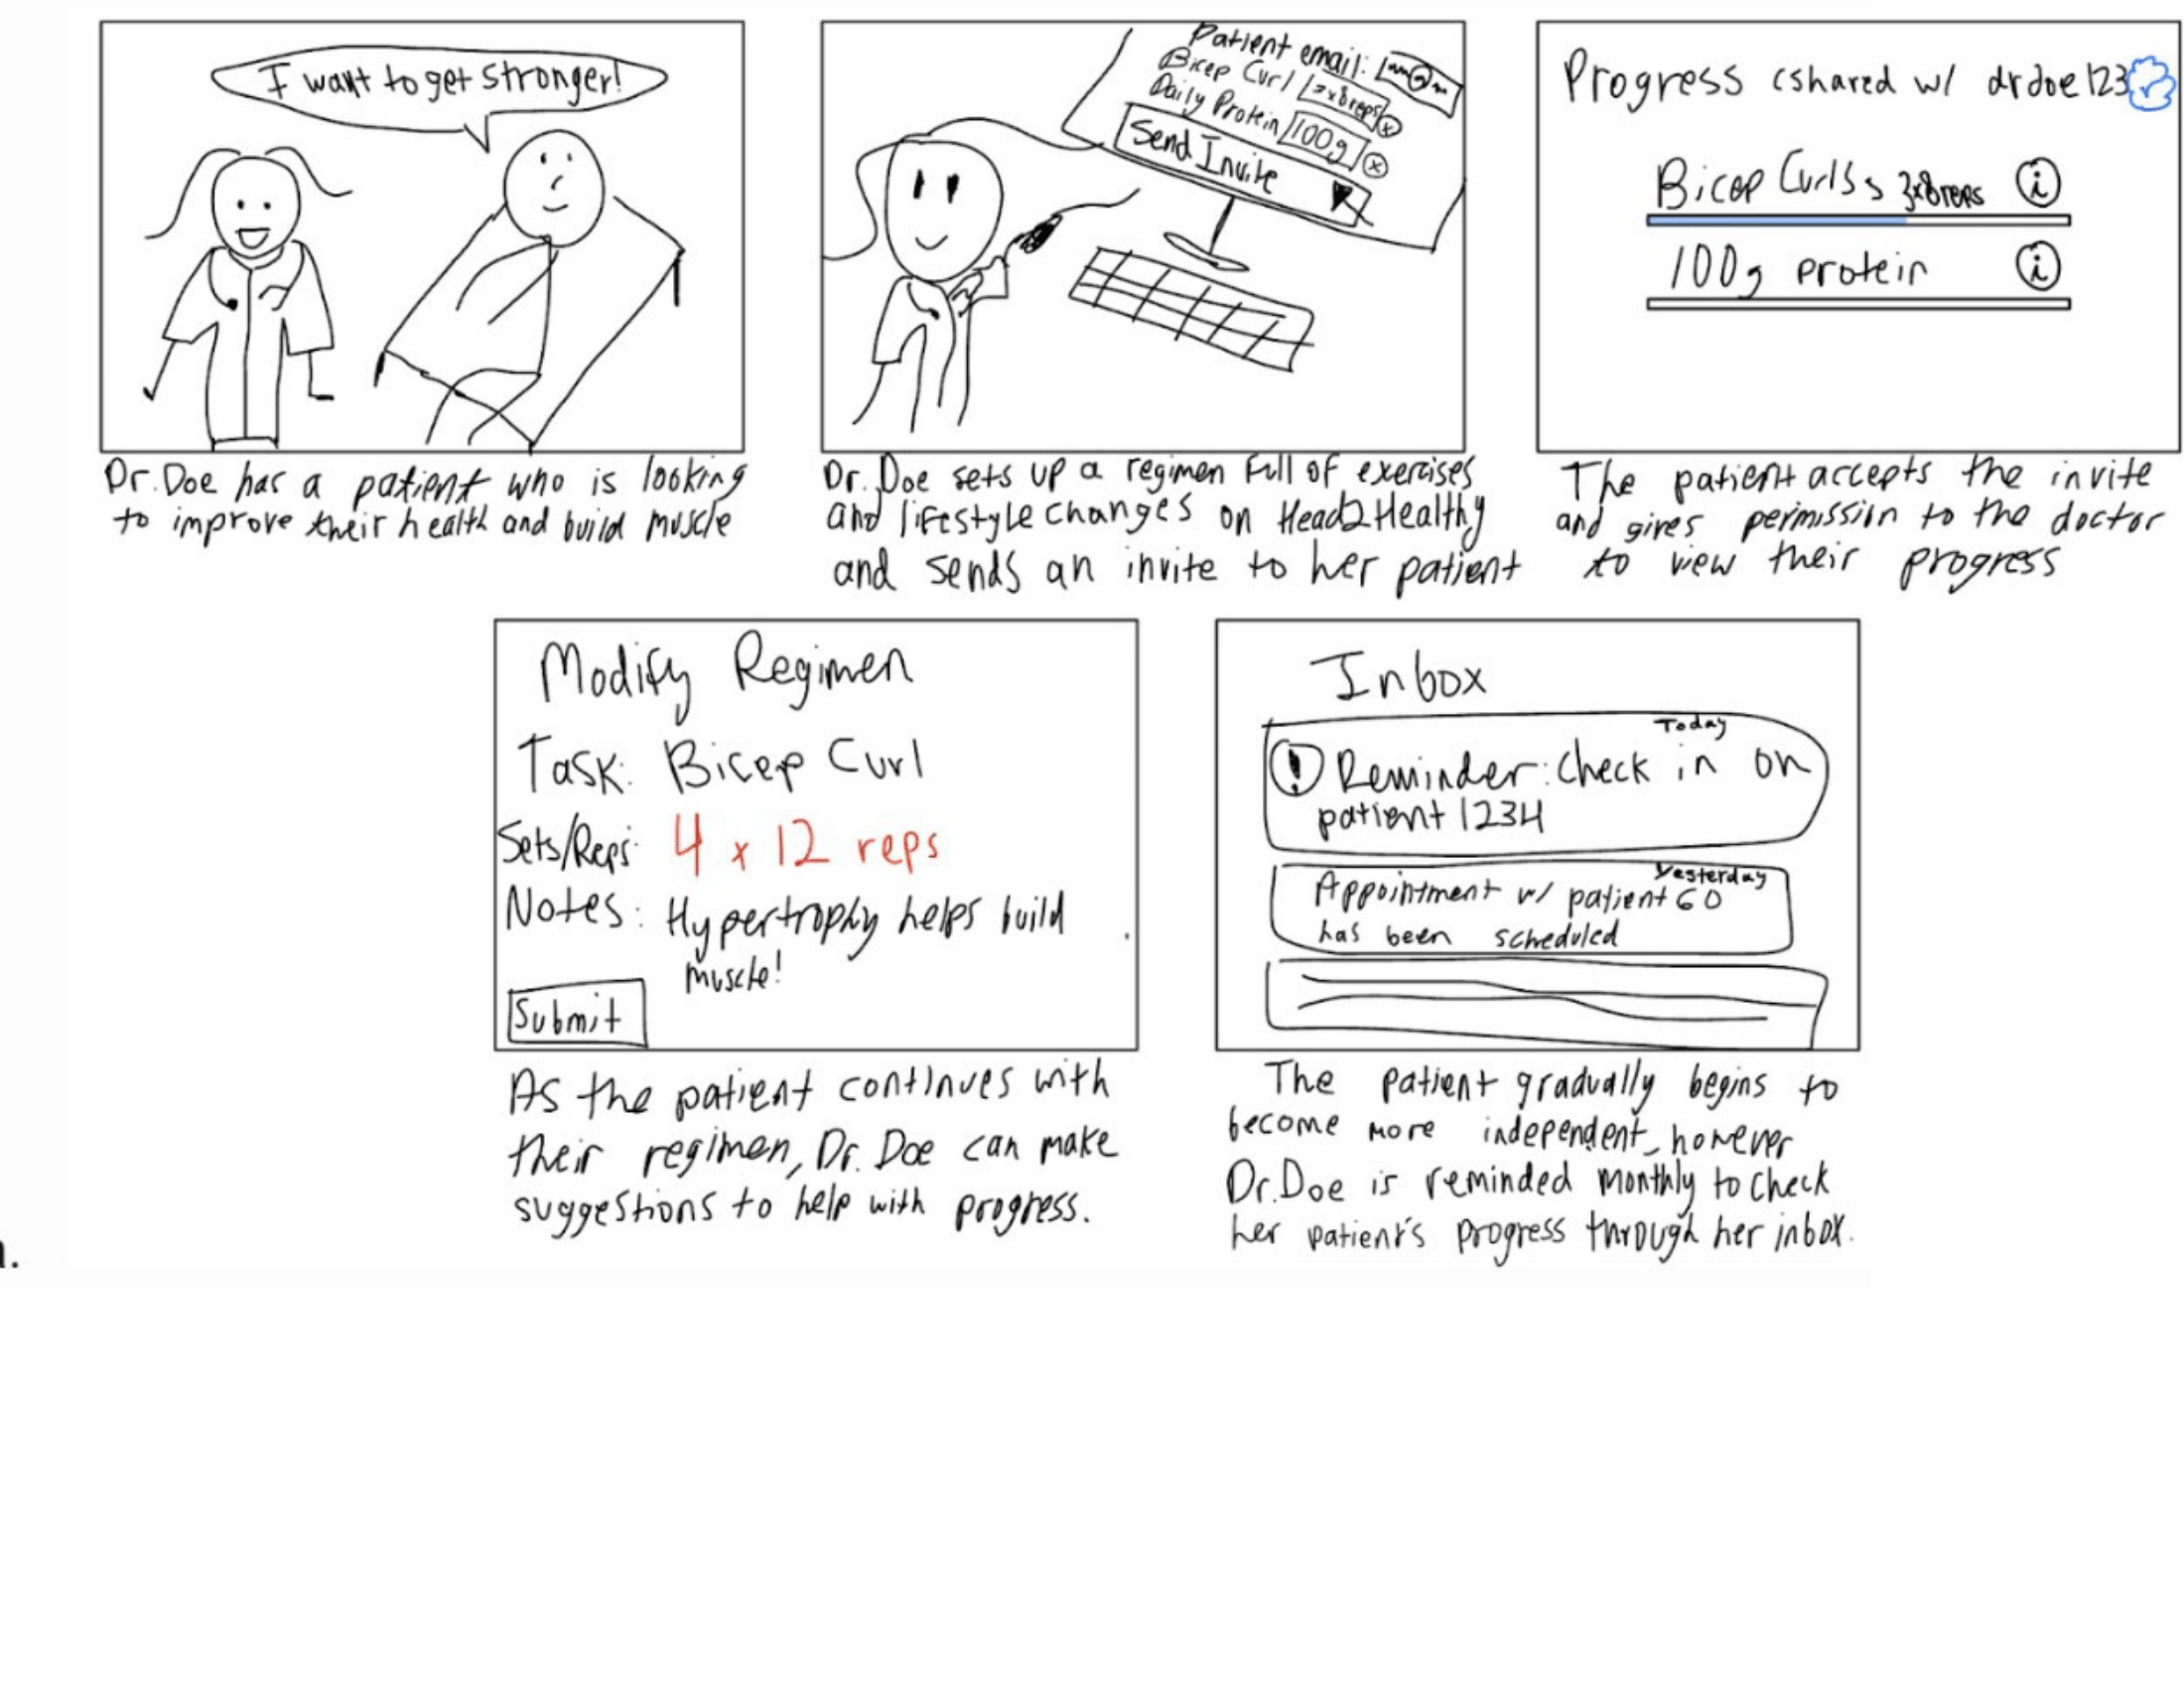 I want to get stronger!
Dr. Doe has a patient who is looking
to improve their health and build muscle
Patient email:
Bicep Curl 3x8reps
Daily Protein 100g
Send Invite
Dr. Doe sets up a regimen full of exercises
and lifestyle changes on Head2Healthy
and sends an invite to her patient
Progress (shared w/ drdoe123
Bicep Curls 3x8reps i
100g protein i
The patient accepts the invite
and gives permission to the doctor
to view their progress
Modify Regimen
Task: Bicep Curl
Sets/Reps: 4 x 12 reps
Notes: Hypertrophy helps build
muscle!
Submit
As the patient continues with
their regimen, Dr. Doe can make
suggestions to help with progress.
Inbox
Today
! Reminder: Check in on
patient 1234
Yesterday
Appointment w/ patient 60
has been scheduled
The patient gradually begins to
become more independent, however
Dr. Doe is reminded monthly to check
her patient's progress through her inbox.